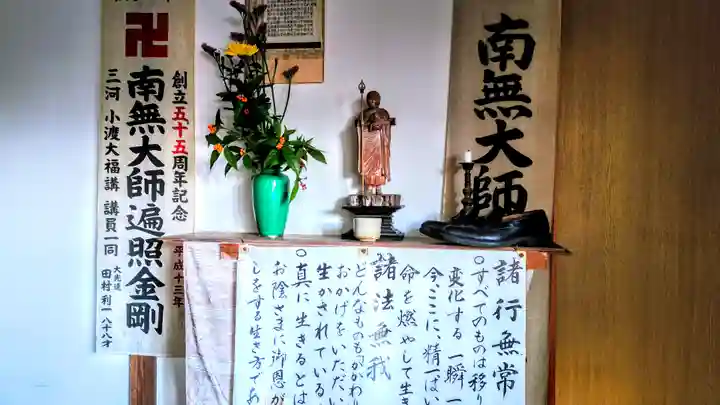 南無大師
諸行無常
○すべてのものは移り
変化する 一瞬一
今、ここに、精一ぱい
命を燃やして生き
諸法無我
どんなものも「かかわり
おかげをいただい
生かされている
○真に生きるとは
お陰さまに御恩が
しをする生き方であ
創立五十五周年記念
平成十三年
卍
南無大師遍照金剛
三河 小渡大福講 講員一同
大先達
田村利一 八十八才